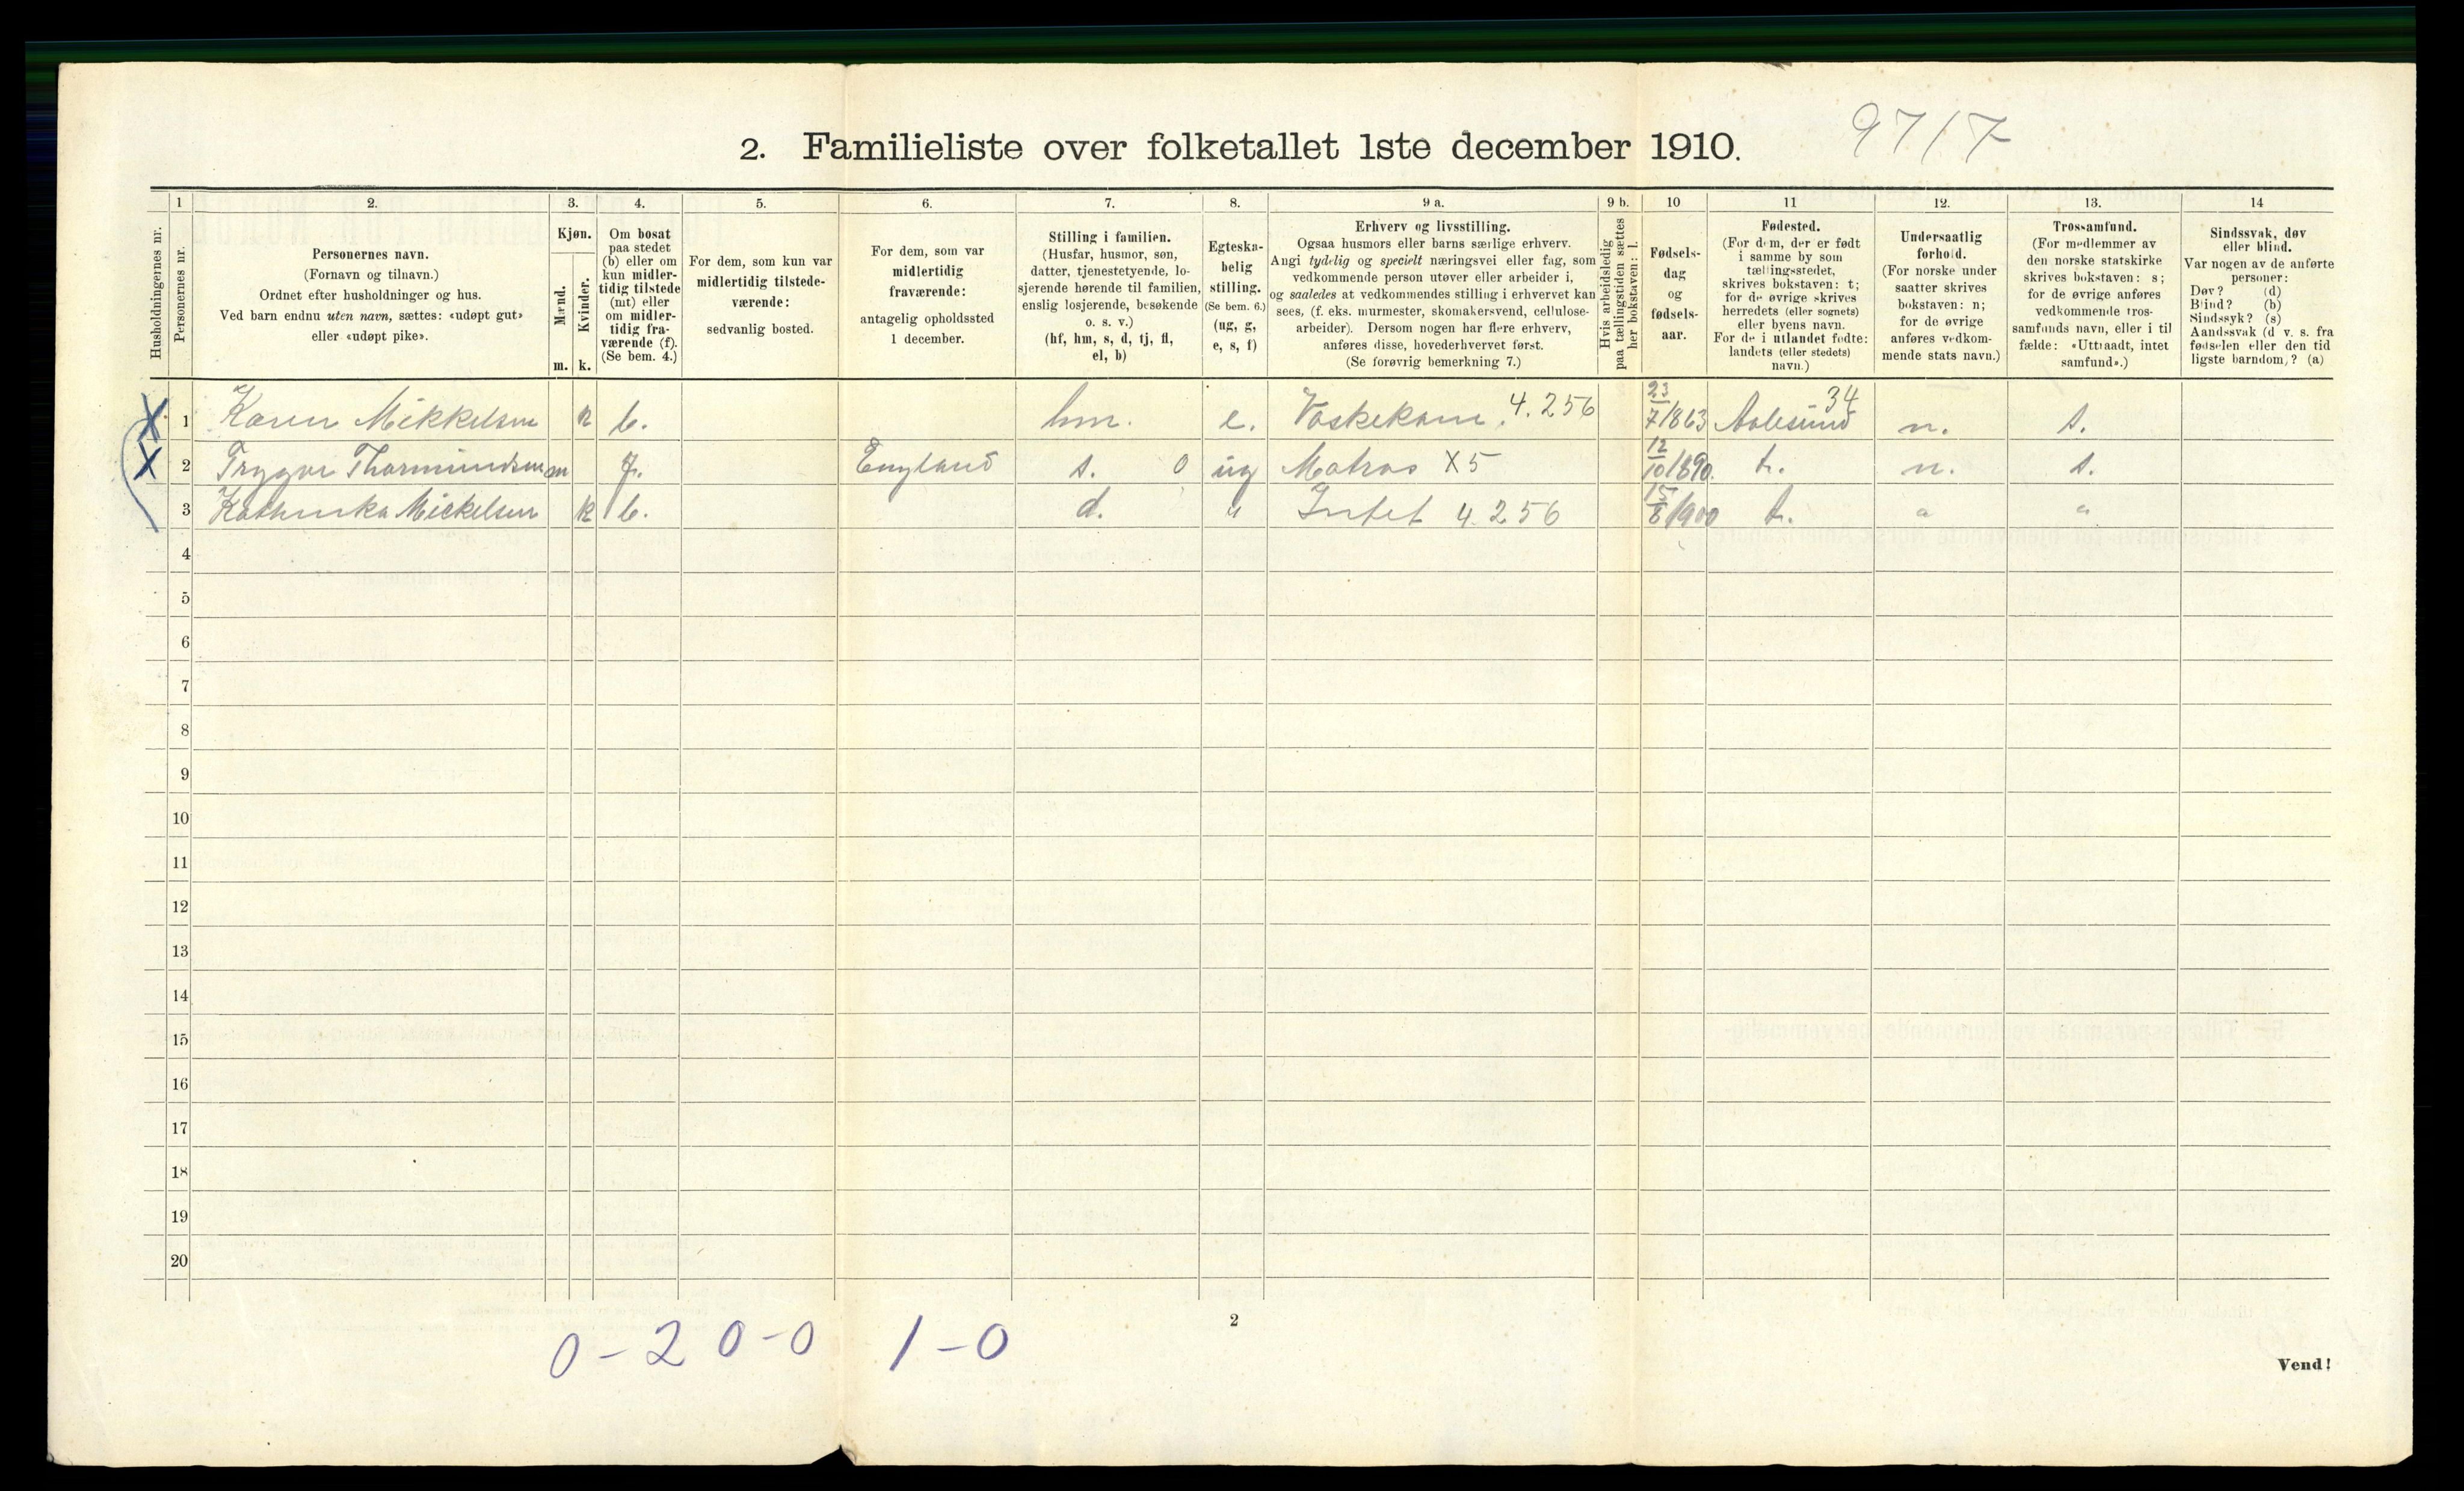 9717
2. Familieliste over folketallet 1ste december 1910.
Husholdningernes nr.
1
Personernes nr.
2.
Personernes navn.
(Fornavn og tilnavn.)
Ordnet efter husholdninger og hus.
Ved barn endnu uten navn, sættes: «udøpt gut»
eller «udøpt pike».
3.
Kjøn.
Mænd.
m.
Kvinder.
k.
4.
Om bosat
paa stedet
(b) eller om
kun midler-
tidig tilstede
(mt) eller
om midler-
tidig fra-
værende (f).
(Se bem. 4.)
5.
For dem, som kun var
midlertidig tilstede-
værende:
sedvanlig bosted.
6.
For dem, som var
midlertidig
fraværende:
antagelig opholdssted
1 december.
7.
Stilling i familien.
(Husfar, husmor, søn,
datter, tjenestetyende, lo-
sjerende hørende til familien,
enslig losjerende, besøkende
o. s. v.)
(hf, hm, s, d, tj, fl,
el, b)
8.
Egteska-
belig
stilling.
(Se bem. 6.)
(ug, g,
e, s, f)
9 a.
Erhverv og livsstilling.
Ogsaa husmors eller barns særlige erhverv.
Angi tydelig og specielt næringsvei eller fag, som
vedkommende person utøver eller arbeider i,
og saaledes at vedkommendes stilling i erhvervet kan
sees, (f. eks. murmester, skomakersvend, cellulose-
arbeider). Dersom nogen har flere erhverv,
anføres disse, hovederhvervet først.
(Se forøvrig bemerkning 7.)
9 b.
Hvis arbeidsledig
paa tællingstiden sættes
her bokstaven: l.
10
Fødsels-
dag
og
fødsels-
aar.
11
Fødested.
(For dem, der er født
i samme by som
tællingsstedet,
skrives bokstaven: t;
for de øvrige skrives
herredets (eller sognets)
eller byens navn.
For de i utlandet fødte:
landets (eller stedets)
navn.)
12.
Undersaatlig
forhold.
(For norske under
saatter skrives
bokstaven: n;
for de øvrige
anføres vedkom-
mende stats navn.)
13.
Trossamfund.
(For medlemmer av
den norske statskirke
skrives bokstaven: s;
for de øvrige anføres
vedkommende tros-
samfunds navn, eller i til
fælde: «Uttraadt, intet
samfund».)
14
Sindssvak, døv
eller blind.
Var nogen av de anførte
personer:
Døv? (d)
Blind? (b)
Sindssyk? (s)
Aandssvak (d v. s. fra
fødselen eller den tid
ligste barndom,? (a)
X 1 Karen Mikkelsen k b. hm. e. Vaskekone. 4.256 23/7 1863 Aalesund 34 n. s.
X 2 Trygve Thormundsen m f. England s. 0 ug Matros X5 12/10 1890. t. n. s.
3 Kathinka Mickelsen k b. d. " Intet 4.256 15/8 1900 t. " "
4
5
6
7
8
9
10
11
12
13
14
15
16
17
18
19
20
0-2 0-0 1-0
2
Vend!